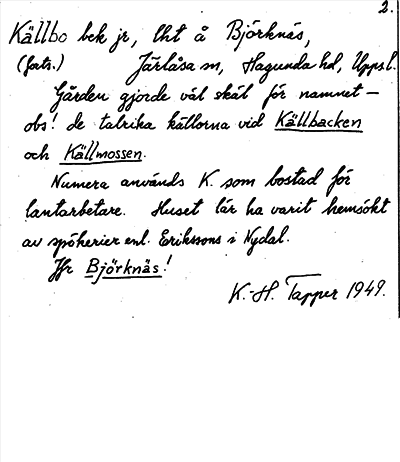 2.
Källbo bek jr, lht å Björknäs,
(forts.) Järlåsa sn, Hagunda hd, Uppsl.
Gården gjorde väl skäl för namnet –
obs! de talrika källorna vid Källbacken
och Källmossen.
Numera används K. som bostad för
lantarbetare. Huset lär ha varit hemsökt
av spökerier enl. Erikssons i Nydal.
Jfr Björknäs!
K.-H. Tapper 1949.